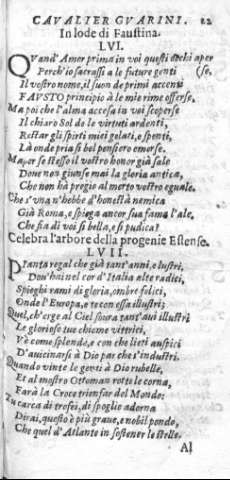 CAVALIER GVARINI. 82
In lode di Faustina.
LVI.
Quand'Amor prima in voi questi occhi aper
Perch'io sacrassi a le future genti (se,
Il vostro nome, il suon de primi accenti
FAVSTO principio à le mie rime offerse.
Ma poi che l'alma accesa in voi scoperse
Il chiaro Sol de le virtuti ardenti,
Restar gli spirti miei gelati, e spenti,
Là onde pria sì bel pensiero emerse.
Ma per se stesso il vostro honor già sale
Doue non giunse mai la gloria antica,
Che non hà pregio al merto vostro eguale.
Che s'vna n'hebbe d'honestà nemica
Già Roma, e spiega ancor sua fama l'ale,
Che fia di voi sì bella, e sì pudica?
Celebra l'arbore della progenie Estense.
LVII.
Pianta regal che già tant'anni, e lustri,
Dou'hai nel cor d'Italia alte radici,
Spieghi rami di gloria, ombre felici,
Onde l'Europa, e te con essa illustri;
Quel, ch'erge al Ciel soura tant'aui illustri
Le gloriose tue chiome vittrici,
Vè come splende, e con che lieti auspici
D'auicinarsi à Dio par che s'industri.
Quando vinte le genti à Dio rubelle,
Et al mostro Ottoman rotte le corna,
Farà la Croce trionfar del Mondo:
Tu carca di trofei, di spoglie adorna
Dirai, questo è più graue, e nobil pondo,
Che quel d'Atlante in sostener le stelle.
Al